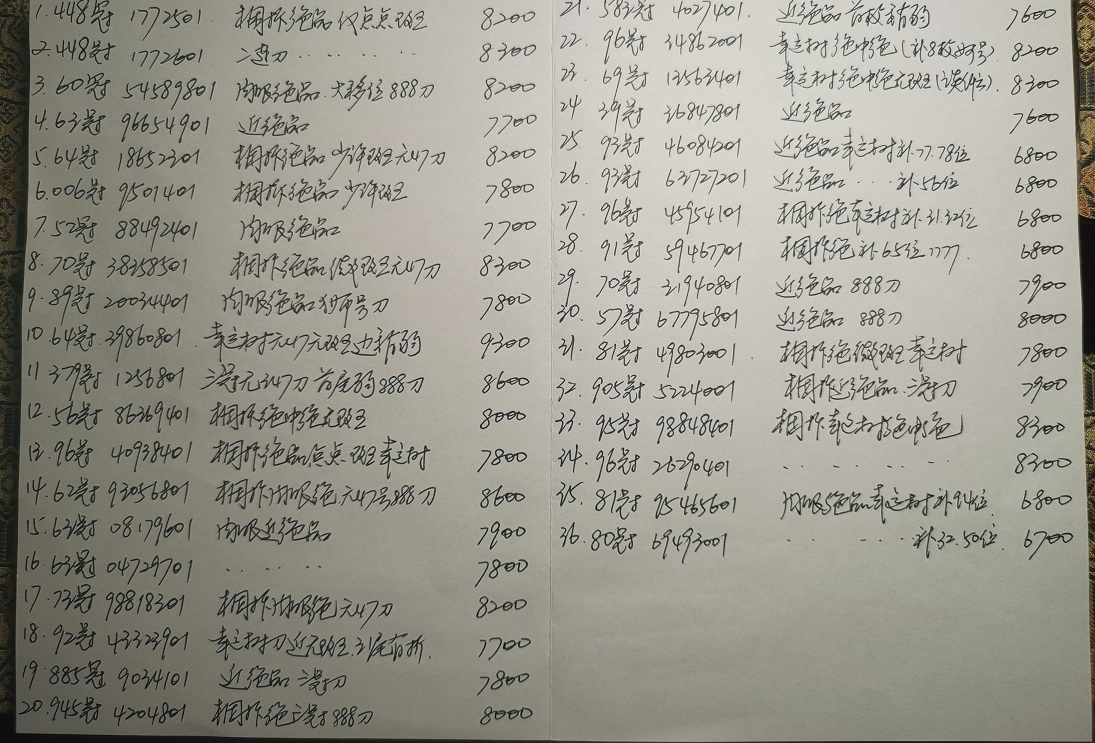 1. 448冠 1772501 相拆绝品仅点点斑 8200
2. 448冠 1772601 二连刀 ........ 8300
3. 60冠 54589801 肉眼绝品.大移位888刀 8200
4. 63冠 96654901 近绝品 7700
5. 64冠 18652301 相拆绝品少许斑无47刀 8200
6. 006冠 9501401 相拆绝品少许斑 7800
7. 52冠 88492401 肉眼绝品 7700
8. 70冠 38358501 相拆绝品 斑无47刀 8300
9. 89冠 20034401 肉眼绝品 号刀 7800
10. 64冠 39860801 幸运树无47无斑边稍弱 9300
11. 379冠 1256801 三冠无347刀首尾弱888刀 8600
12. 56冠 86369401 相拆绝中绝无斑 8000
13. 96冠 40938401 相拆绝品点点斑幸运树 7800
14. 62冠 93056801 相拆肉眼绝无47号888刀 8600
15. 63冠 08179601 肉眼近绝品 7900
16. 63冠 04729701 ..... 7800
17. 73冠 98818301 相拆肉眼绝无47刀 8200
18. 92冠 43323901 幸运树刀近无斑.刀尾有折. 7700
19. 885冠 9034101 近绝品 三冠刀 7800
20. 945冠 4204801 相拆绝三冠888刀 8000
21. 583冠 4027401. 近绝品首枚稍弱 7600
22. 96冠 34862001 幸运树绝中绝(补8枚好号) 8200
23. 69冠 13563401 幸运树绝中绝无斑 8300
24. 39冠 36847801 近绝品 7600
25. 93冠 46084201 近绝品幸运树补77.78位 6800
26. 93冠 63727201 近绝品....补56位 6800
27. 96冠 45954101 相拆绝幸运树补31.32位 6800
28. 91冠 59467701 相拆绝补65位777. 6800
29. 70冠 31940801 近绝品 888刀 7900
30. 57冠 67795801 近绝品 888刀 8000
31. 81冠 49803001. 相拆绝微斑幸运树 7800
32. 905冠 5224001 相拆近绝品.三冠刀 7900
33. 95冠 98848401 相拆幸运树绝中绝 8300
34. 96冠 26290401 ........ 8300
35. 81冠 95465601 肉眼绝品幸运树补94位. 6800
36. 80冠 69493001 ......补32.50位. 6700